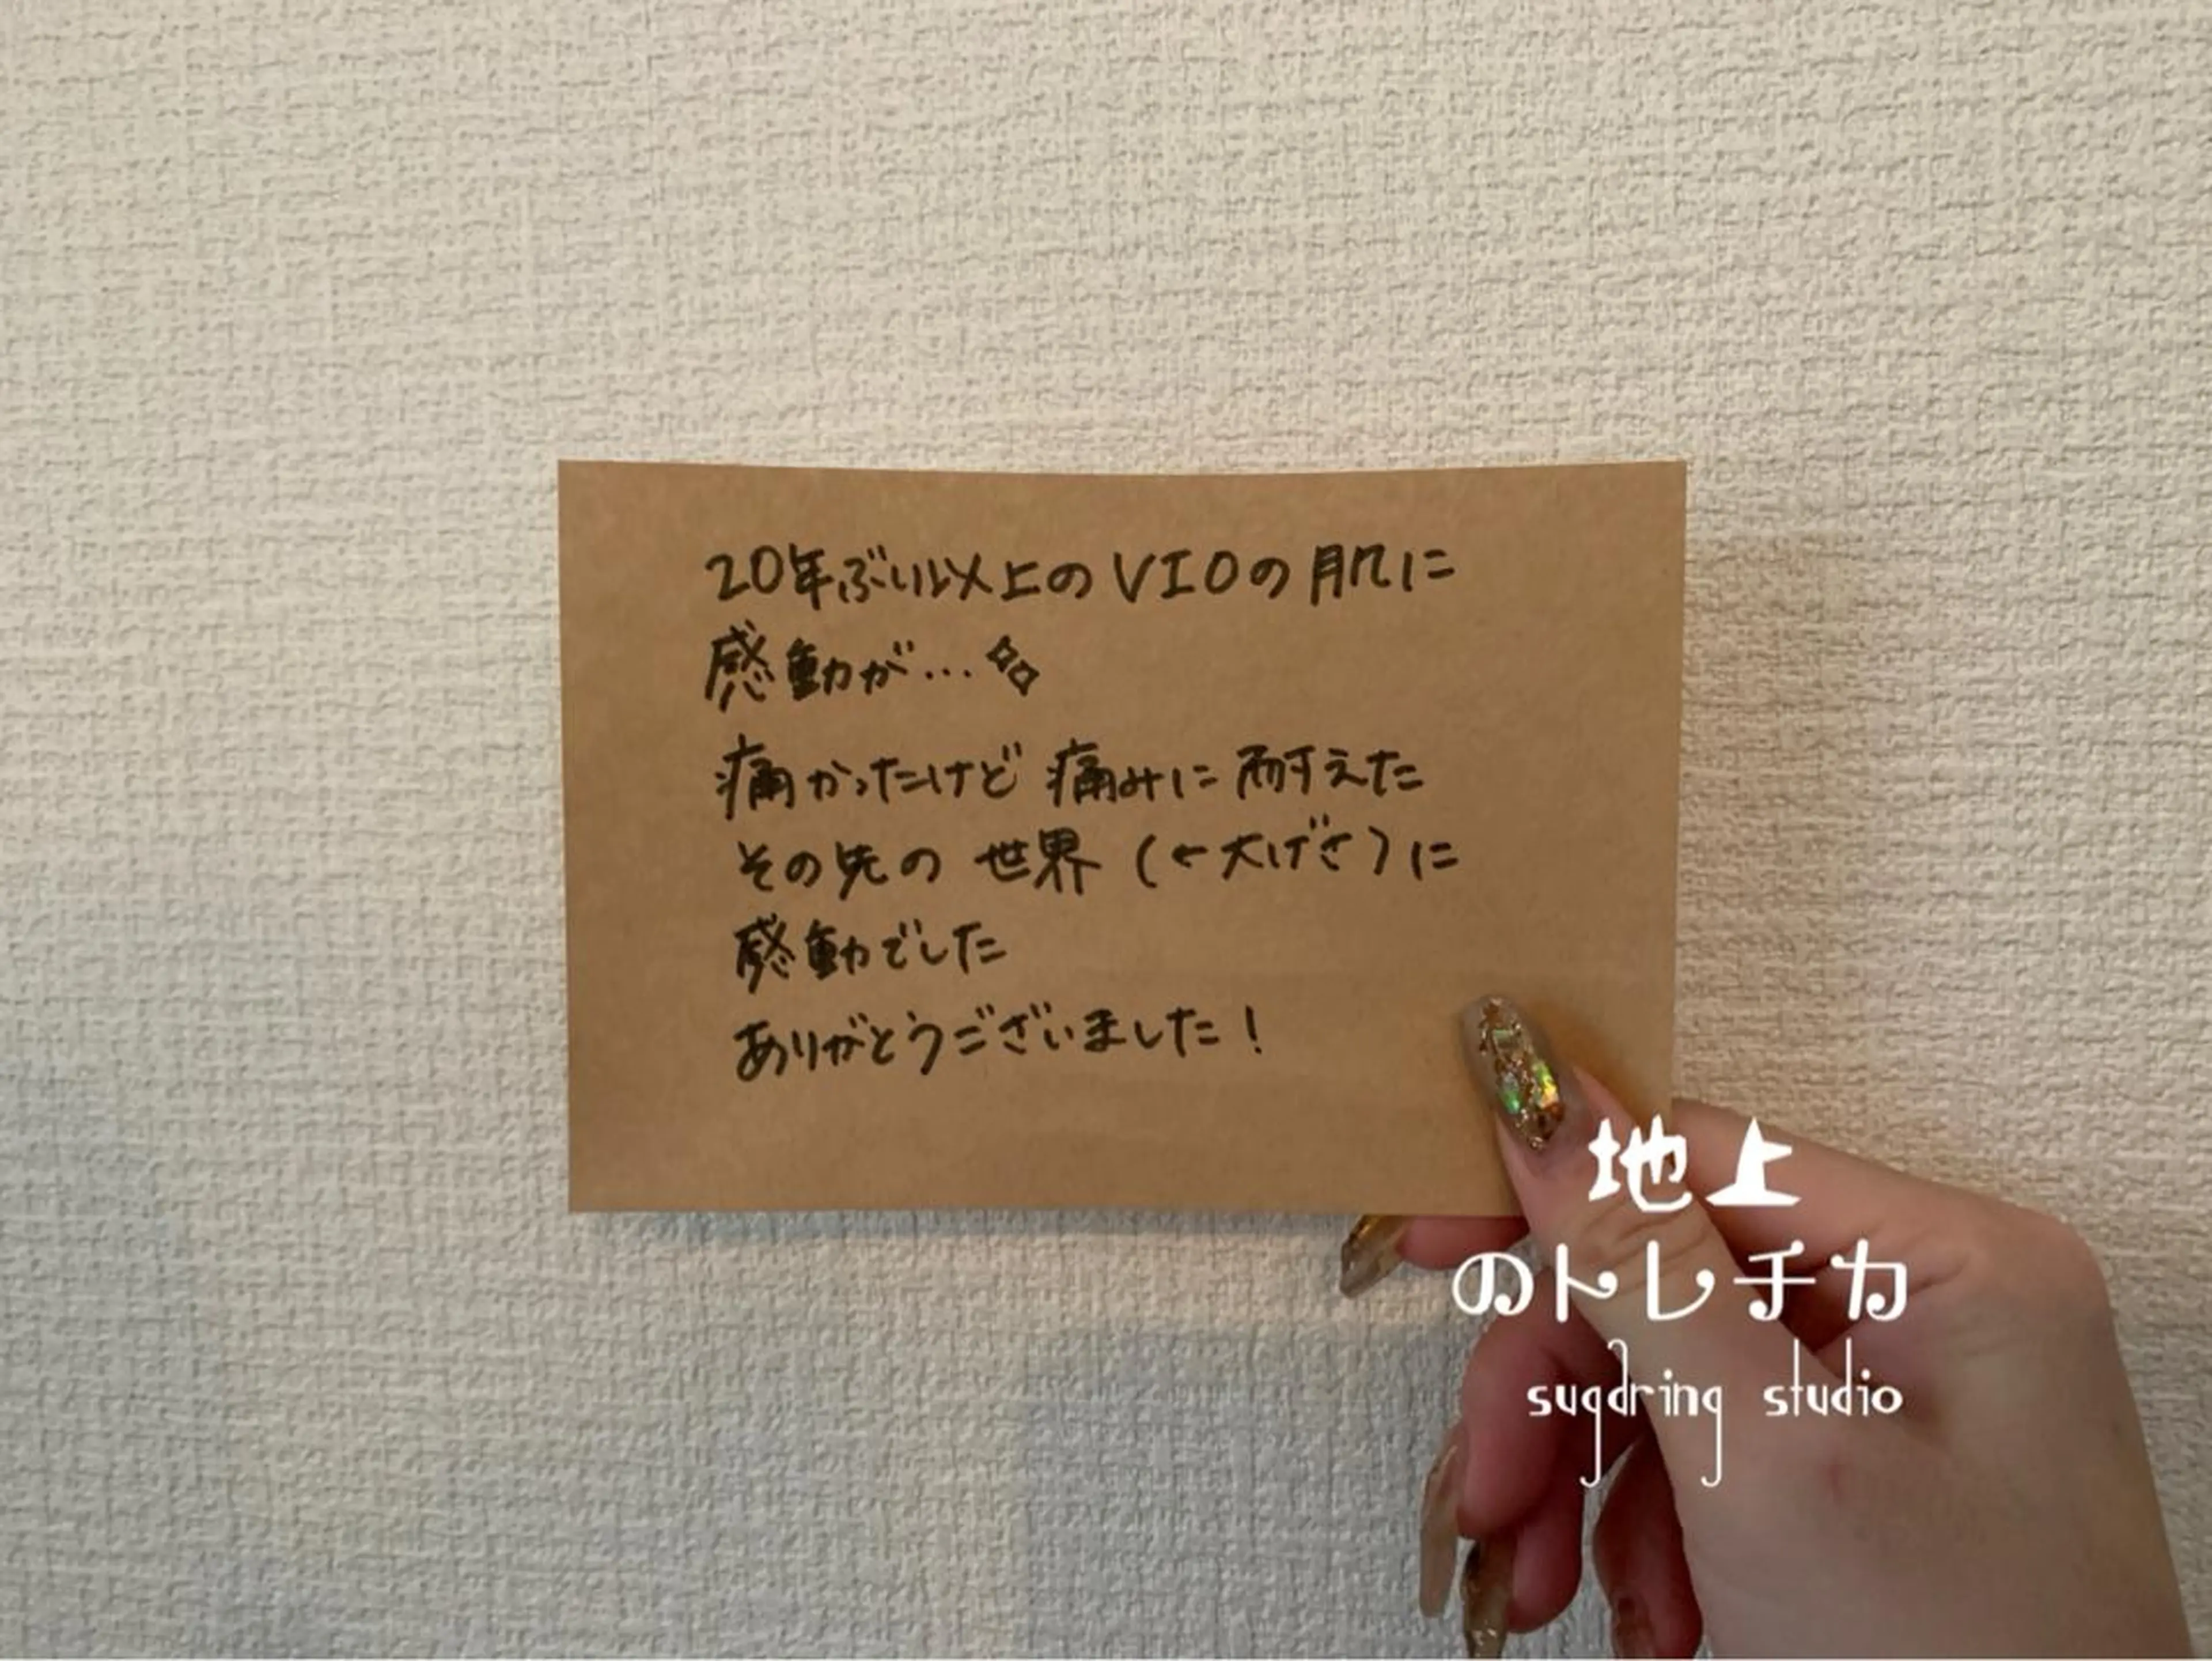 20年ぶり以上のVIOの肌に
感動が…
痛かったけど 痛みに耐えた
その先の 世界 (←大げさ)に
感動でした
ありがとうございました!
地上
のトレチカ
sugaring studio